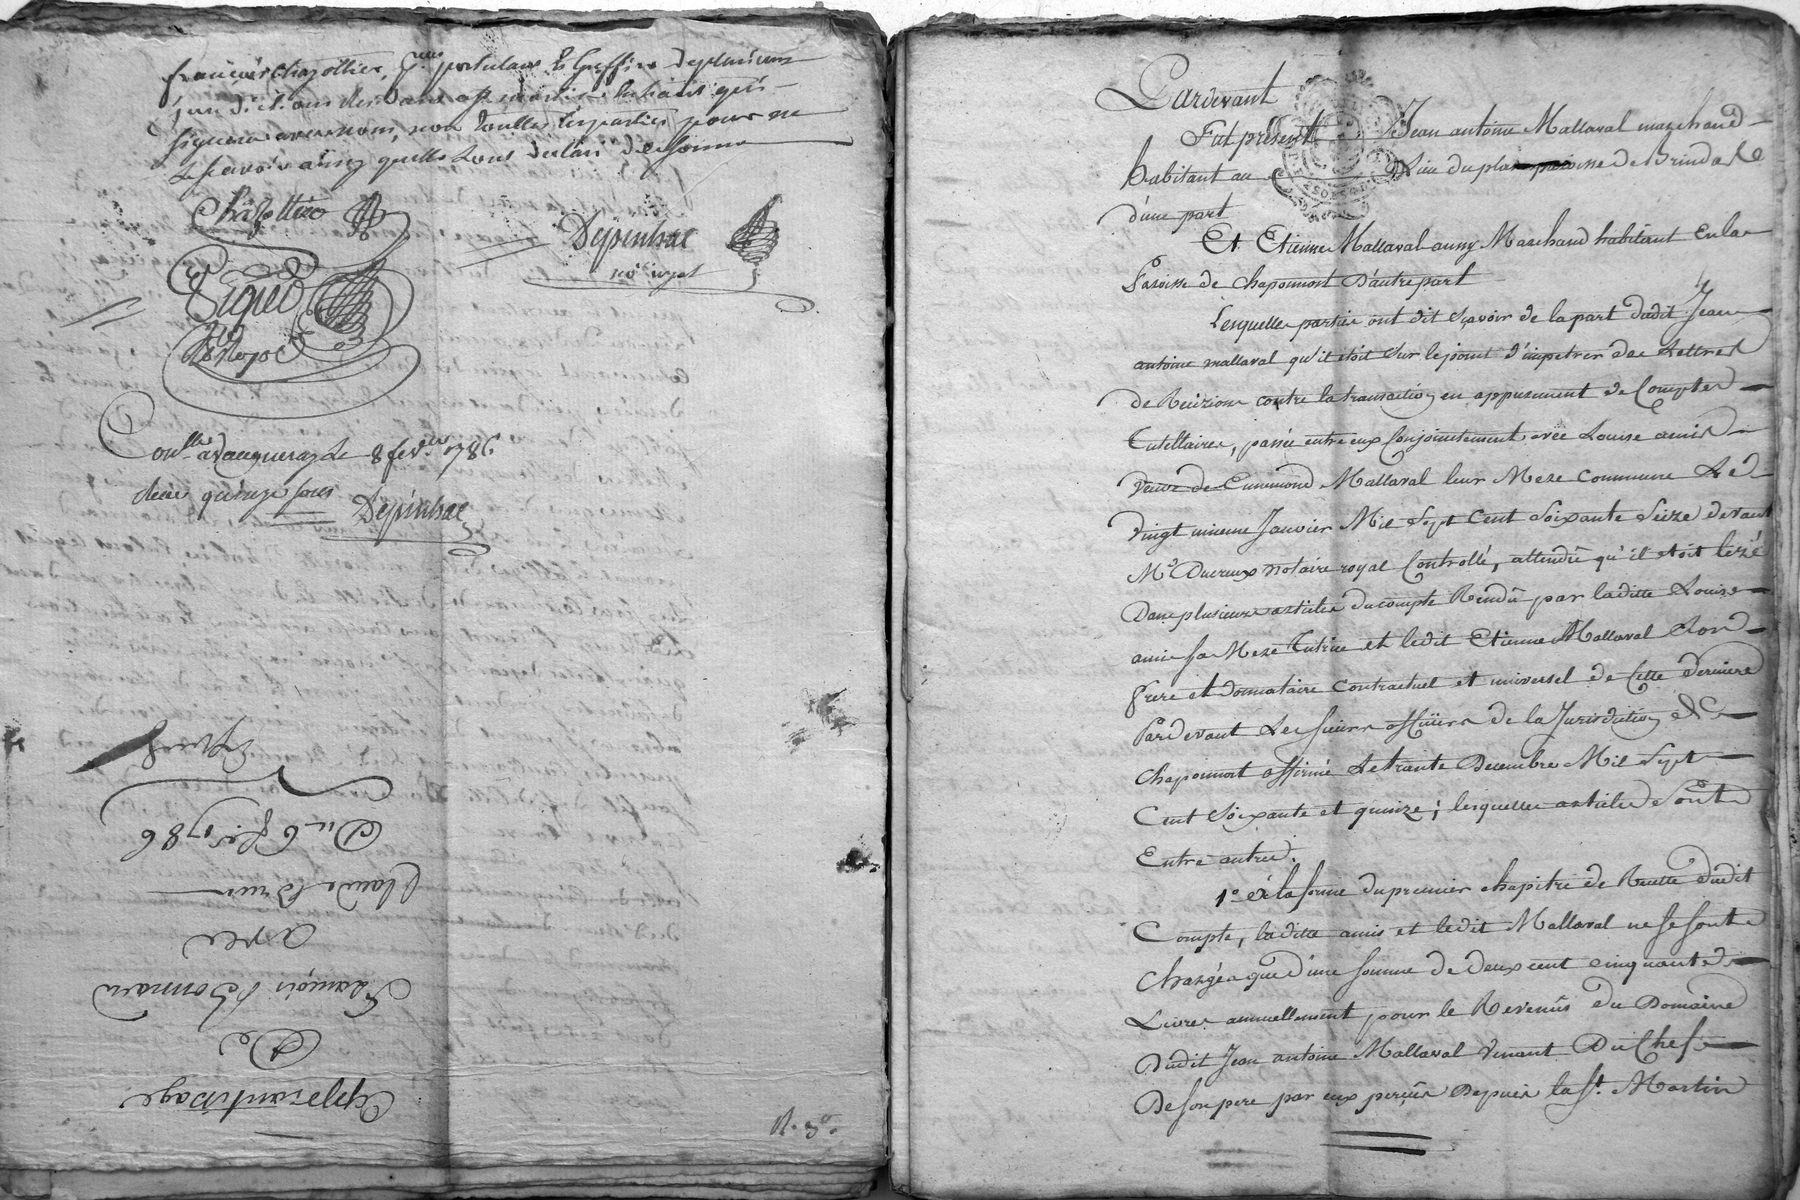 françois chazottier, postulant & greffier de plusieurs
jurisdictions
signeront avec nous, non les parties pour ne
le sçavoir ainsy quelles l'ont déclaré de
Chazottier
Depinhac
no.re royal
Viguié
No.re Royal
Con.llé a vaugneray le 8 fev.er 1786
Reçu quinze sous Depinhac
Du 6 f.er 1786
Claude Brun
avec
François Bonnard
De
Apprantissage
R. 3.o
Pardevant
Fut présent Jean antoine Mallaval marchand
habitant au Lieu du plat paroisse de Brindas
d'une part
Et Etienne Mallaval aussy Marchand habitant en la
Paroisse de chaponnost D'autre part
Lesquelles parties ont dit sçavoir de la part dudit Jean
antoine mallaval qu'il étoit sur le point d'impetrer des Lettres
de Récizion contre la transaction en appurement de Comptes
Tutellaires, passée entre eux Conjointement avec Louise amis
veuve de Ennemond Mallaval leur Mere commune Le
vingt unieme Janvier Mil Sept Cent Soixante Seize devant
M.e Ducreux notaire royal Controllé, attendû qu'il étoit lezé
Dans plusieurs articles du compte Rendû par laditte Louise
amis sa Mere Tutrice et ledit Etienne Mallaval Son
frere et donnataire contractuel et universel de Cette derniere
Pardevant Les sieurs officiers de la Jurisdiction de
chaponnost affirmé Le trante Decembre Mil Sept
Cent Soixante et quinze; lesquelles articles Sont
Entre autres.
1.o à la forme du premier chapitre de Recette dudit
Compte, laditte amis et ledit Mallaval ne se sont
chargés que d'une somme de deux cent cinquante
Livres annuellement pour le Revenûs du Domaine
Dudit Jean antoine Mallaval venant Du Chef
De son pere par eux perçûs Depuis la S.t Martin